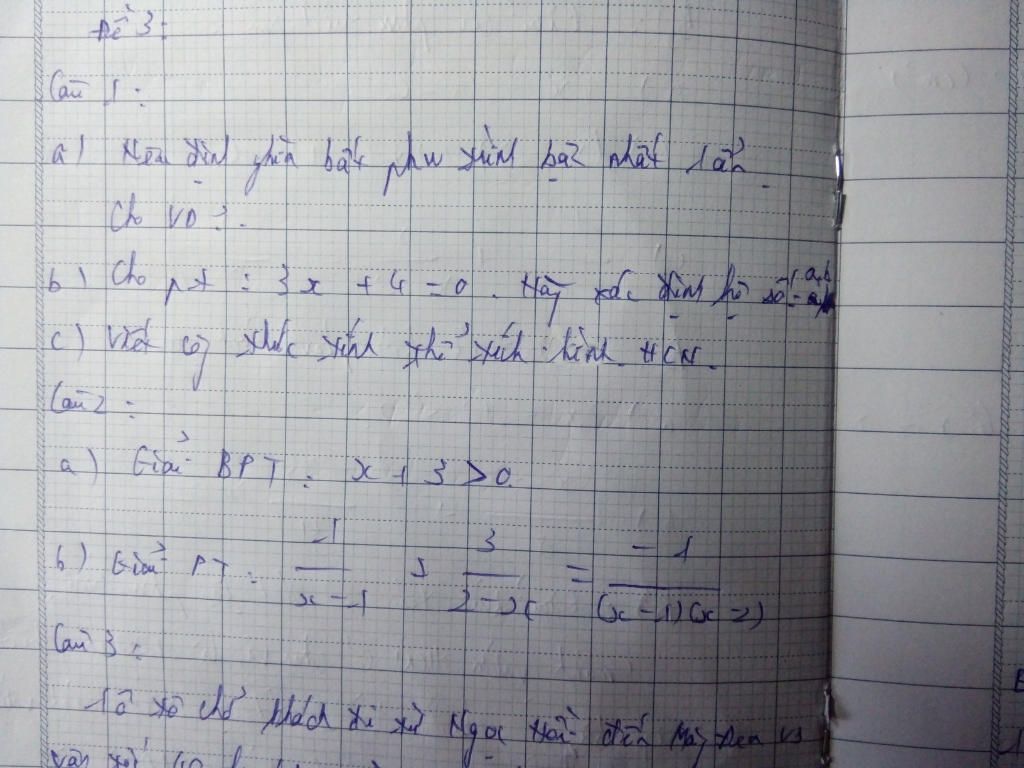 Đề 3:
Câu 1:
a) Nêu định ghĩa bất phư trình bậc nhất 1 ẩn.
Cho VD?.
b) Cho pt : 3x + 4 = 0. Hãy xác định hệ số a,b
c) Viết cg thức tính thể tích hình HCN.
Câu 2:
a) Giải BPT: x + 3 > 0
b) Giải PT: -1/(x-1) + 3/(2-x) = -1/((x-1)(x-2))
Câu 3:
1 ô tô chở khách đi từ Ngọc Hồi đến
vận tốc 40